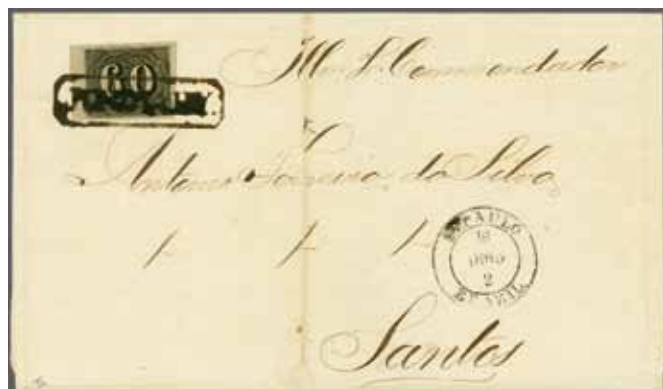 60
Illmo Sr. Commendador
Antonio Ferreira da Silva
S. PAULO
2
BRAZIL
Santos